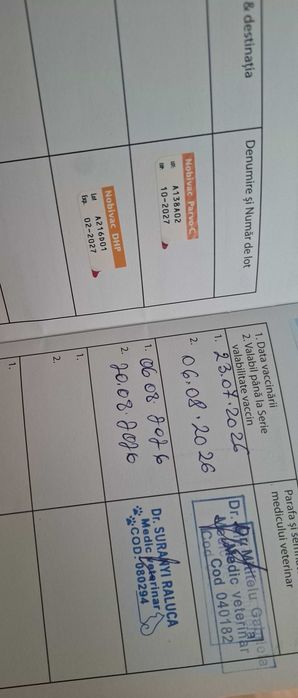 & destinația
Denumire și Număr de lot
Nobivac Parvo-C
Lot
A138A02
EXP
10-2027
Nobivac DHP
Lot A216D01
Exp 02-2027
1. Data vaccinării
2. Valabil până la Serie
valabilitate vaccin
Parafa și
medicului veterinar
1. 23.07.2026
2. 06.08.2026
Dr.
Medic veterinar
Cod 040182
1. 06.08.2026
2. 20.08.2026
Dr. SURANYI RALUCA
Medic Veterinar
COD: 080294
1.
2.
1.